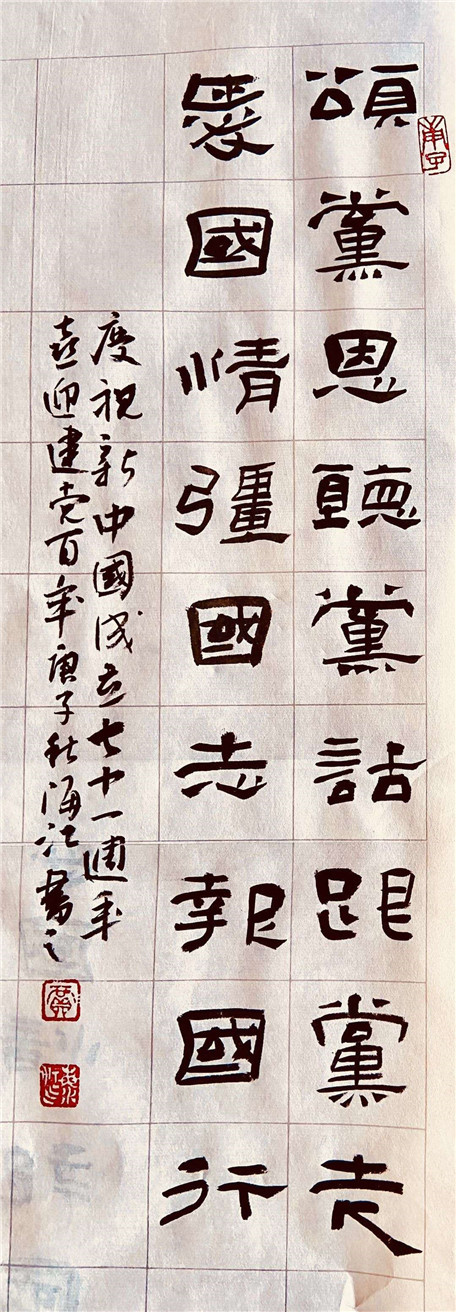 頌黨恩聽黨話跟黨走
愛國情彊國志報國行
慶祝新中國成立七十一週年
喜迎建党百年庚子秋海江書之
庚子